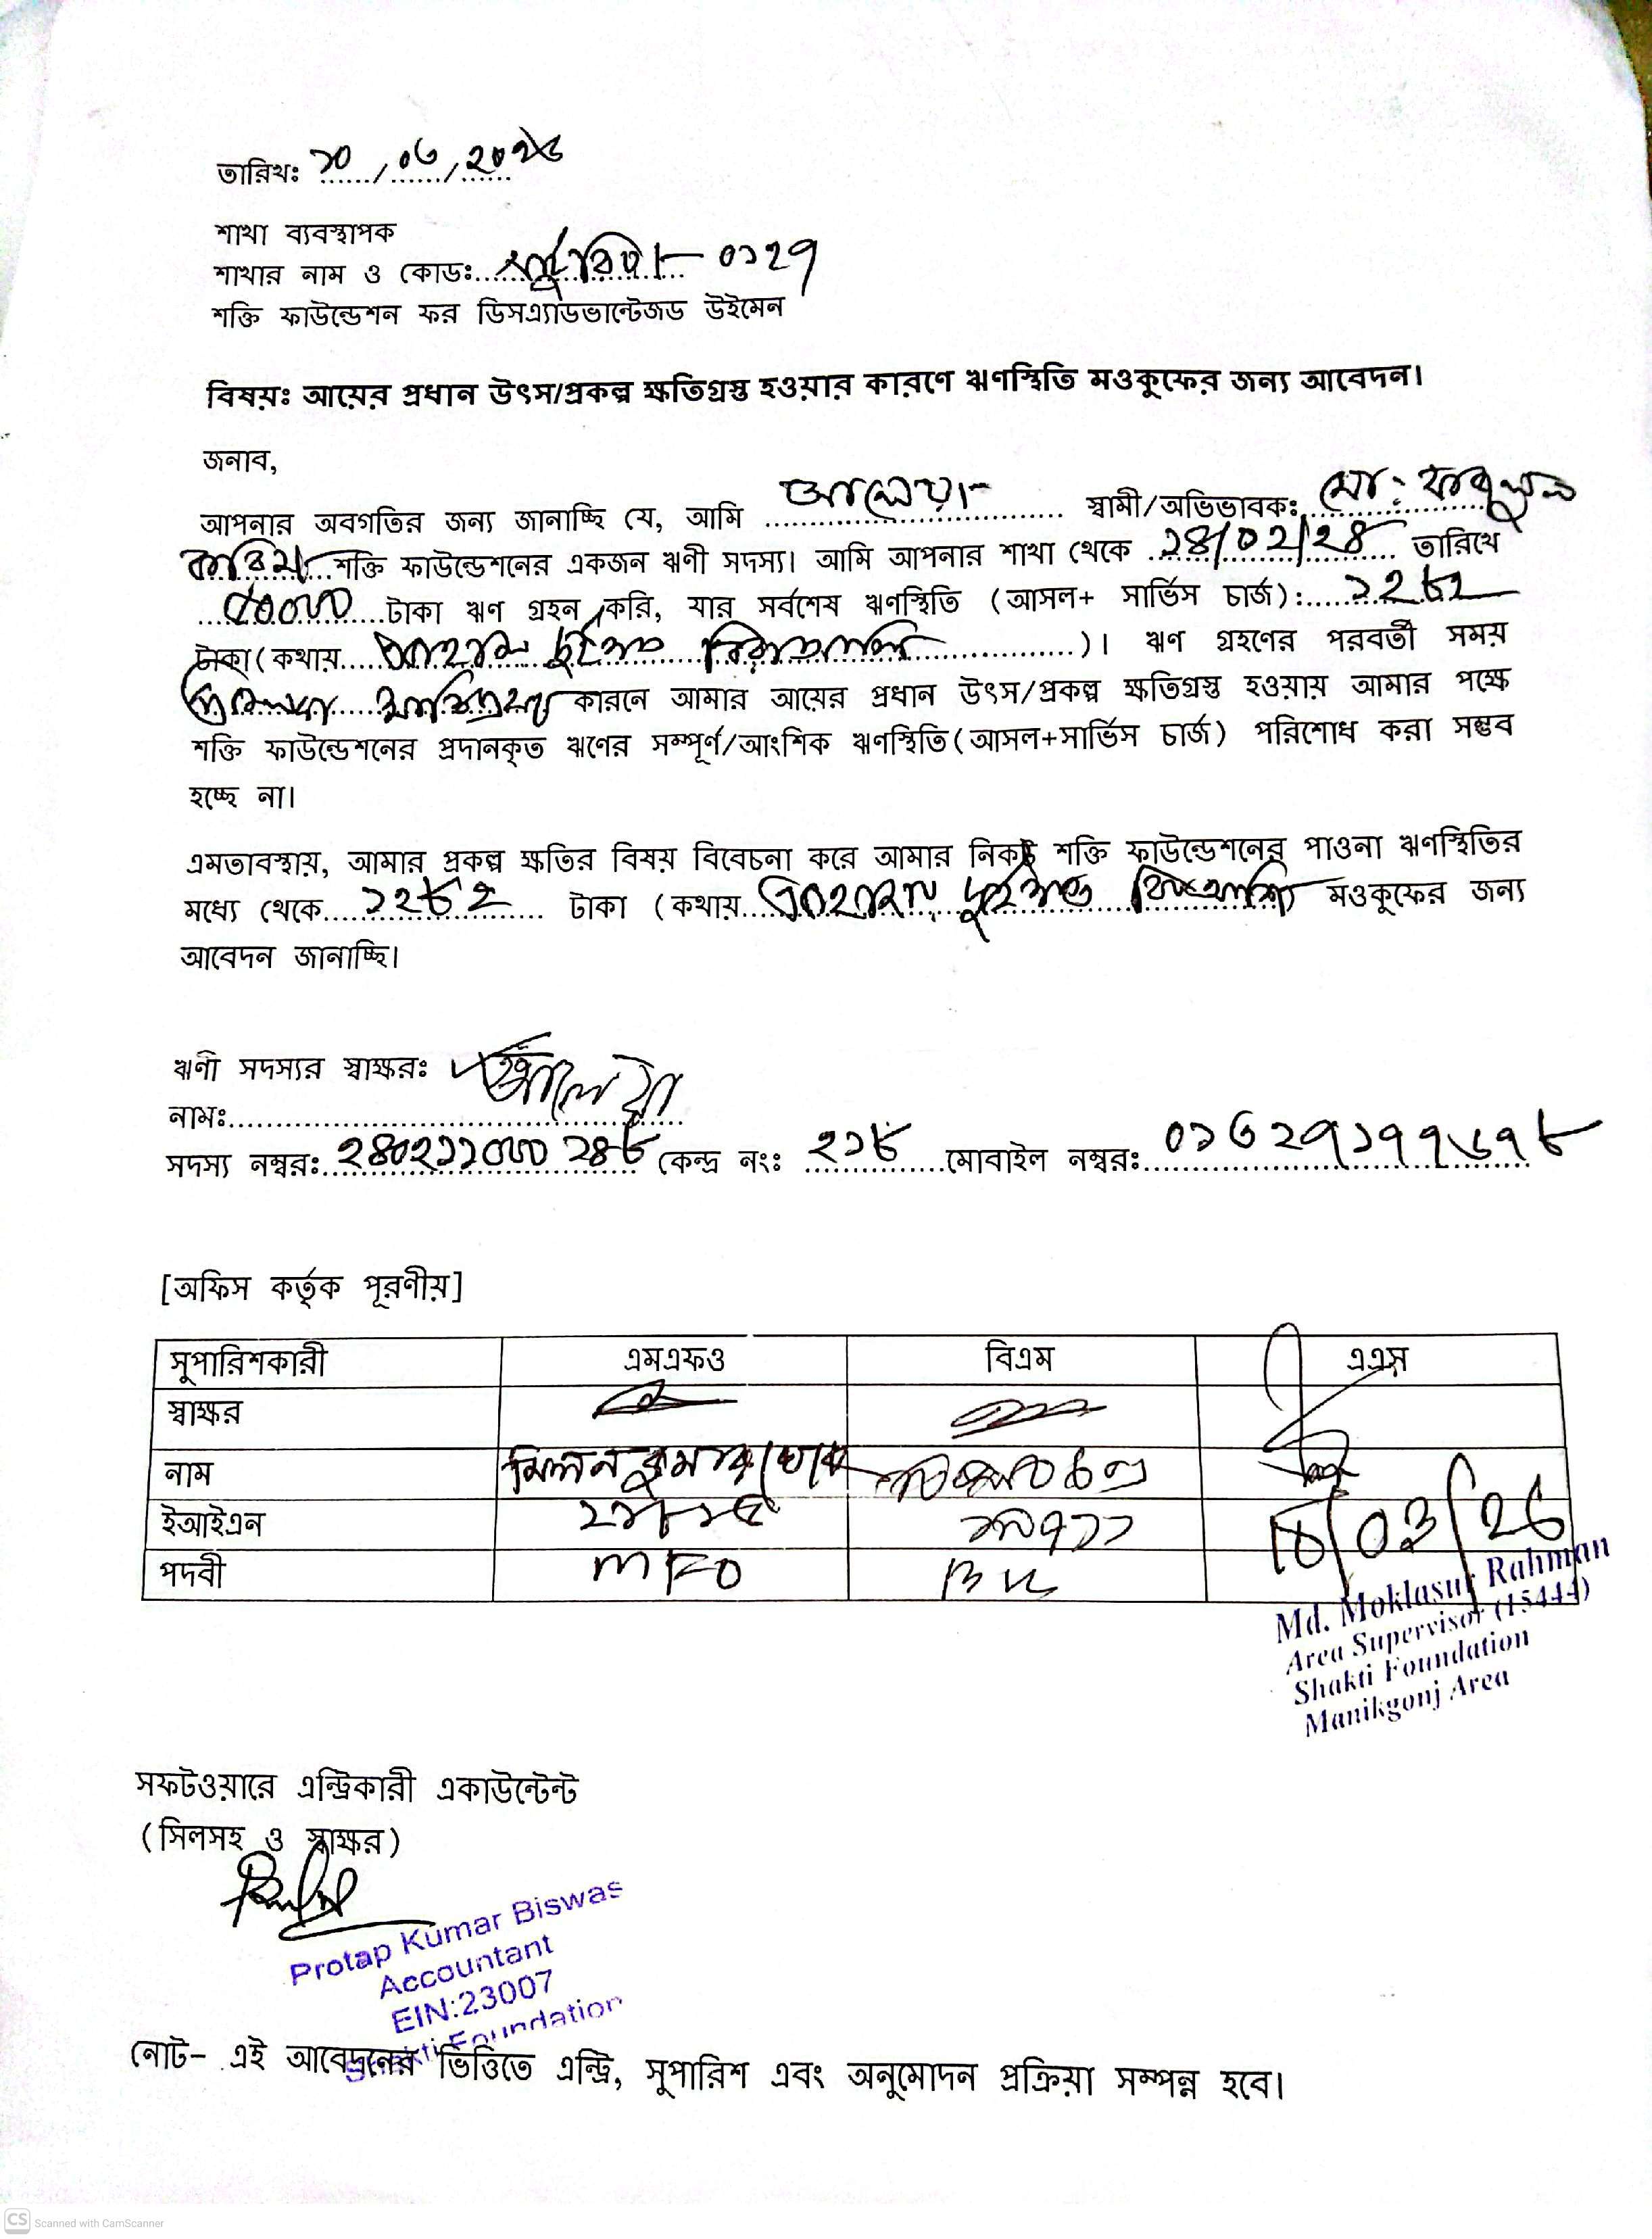 তারিখঃ ১০/০৩/২০২৬
শাখা ব্যবস্থাপক
শাখার নাম ও কোডঃ - ০১২৭
শক্তি ফাউন্ডেশন ফর ডিসএ্যাডভান্টেজড উইমেন
বিষয়ঃ আয়ের প্রধান উৎস/প্রকল্প ক্ষতিগ্রস্ত হওয়ার কারণে ঋণস্থিতি মওকুফের জন্য আবেদন।
জনাব,
আপনার অবগতির জন্য জানাচ্ছি যে, আমি আলেয়া স্বামী/অভিভাবকঃ মোঃ
শক্তি ফাউন্ডেশনের একজন ঋণী সদস্য। আমি আপনার শাখা থেকে ১৪/০২/২৪ তারিখে
৫০০০০ টাকা ঋণ গ্রহন করি, যার সর্বশেষ ঋণস্থিতি (আসল+ সার্ভিস চার্জ): ১২৮২
টাকা(কথায় একহাজার দুইশত বিরাশি)। ঋণ গ্রহণের পরবর্তী সময়
কারনে আমার আয়ের প্রধান উৎস/প্রকল্প ক্ষতিগ্রস্ত হওয়ায় আমার পক্ষে
শক্তি ফাউন্ডেশনের প্রদানকৃত ঋণের সম্পূর্ণ/আংশিক ঋণস্থিতি(আসল+সার্ভিস চার্জ) পরিশোধ করা সম্ভব
হচ্ছে না।
এমতাবস্থায়, আমার প্রকল্প ক্ষতির বিষয় বিবেচনা করে আমার নিকট শক্তি ফাউন্ডেশনের পাওনা ঋণস্থিতির
মধ্যে থেকে ১২৮২ টাকা (কথায় একহাজার দুইশত বিরাশি মওকুফের জন্য
আবেদন জানাচ্ছি।
ঋণী সদস্যর স্বাক্ষরঃ আলেয়া
নামঃ
সদস্য নম্বরঃ ২৪০২১১০০০২৪৮ কেন্দ্র নংঃ ২১৮ মোবাইল নম্বরঃ
[অফিস কর্তৃক পূরণীয়]
সুপারিশকারী এমএফও বিএম এএস
স্বাক্ষর
নাম মিলন কুমার ঘোষ
ইআইএন 18/03/26
পদবী MFO BM
Md. Moklasur Rahman
Area Supervisor (15444)
Shakti Foundation
Manikgonj Area
সফটওয়ারে এন্ট্রিকারী একাউন্টেন্ট
(সিলসহ ও স্বাক্ষর)
Protap Kumar Biswas
Accountant
EIN:23007
Shakti Foundation
নোট- এই আবেদনের ভিত্তিতে এন্ট্রি, সুপারিশ এবং অনুমোদন প্রক্রিয়া সম্পন্ন হবে।
CS Scanned with CamScanner